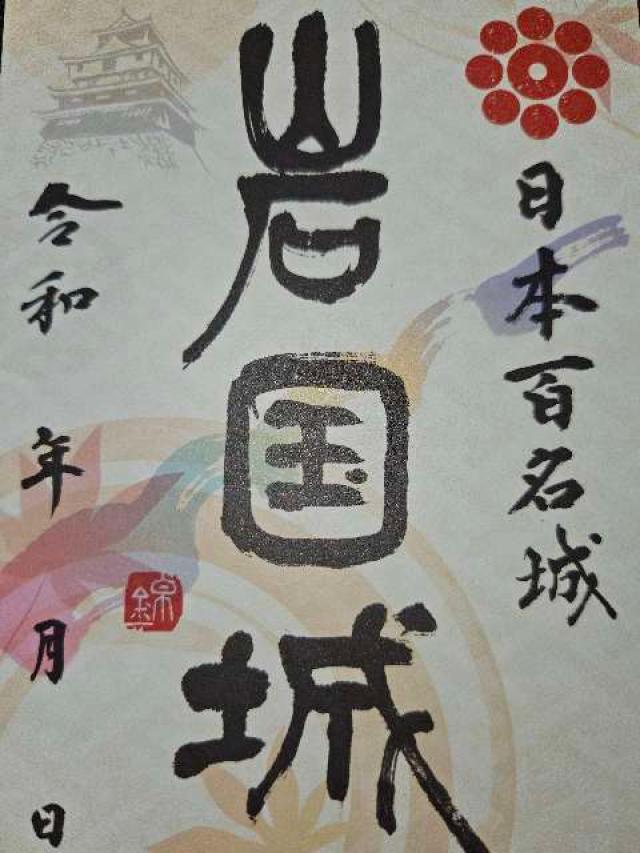 日本百名城
岩国城
令和 年 月 日
錦